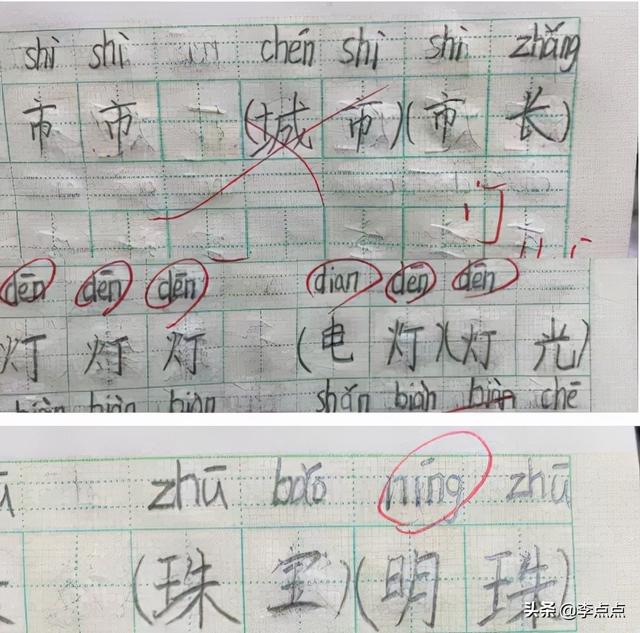 shì shì chén shì shì zhǎng
市 市 (城 市)(市 长)
dēn dēn dēn dian dēn dēn
灯 灯 灯 (电 灯)(灯 光)
biàn biàn biàn shǎn biàn biàn chē
zhū bǎo níng zhū
(珠 宝)(明 珠)
头条 @李点点